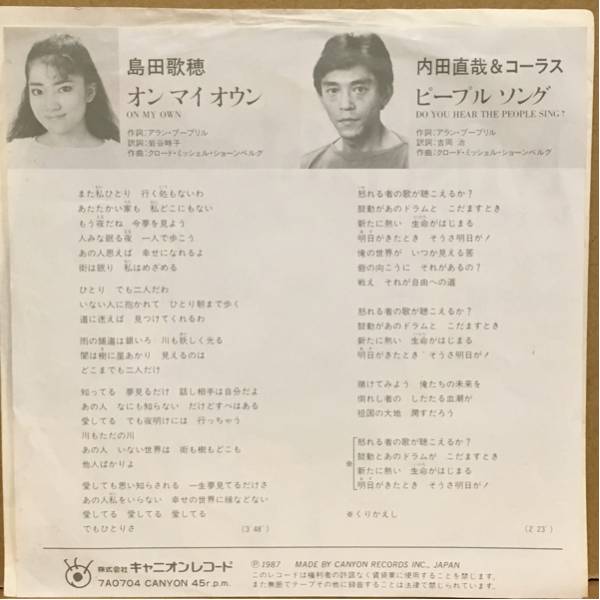 島田歌穂
オン マイ オウン
ON MY OWN
作詞:アラン・ブーブリル
訳詞:岩谷時子
作曲:クロード・ミッシェル・ショーンベルグ
また私ひとり 行く処もないわ
あたたかい家も 私どこにもない
もう夜だね 今夢を見よう
人みな眠る夜 一人で歩こう
あの人思えば 幸せになれるよ
街は眠り 私はめざめる
ひとり でも二人だわ
いない人に抱かれて ひとり朝まで歩く
道に迷えば 見つけてくれるわ
雨の舗道は銀いろ 川も妖しく光る
闇は樹に星あかり 見えるのは
どこまでも二人だけ
知ってる 夢見るだけ 話し相手は自分だよ
あの人 なにも知らない だけど すべはある
愛してる でも夜明けには 行っちゃう
川もただの川
あの人 いない世界は 街も樹もどこも
他人ばかりよ
愛しても思い知らされる 一生夢見てるだけさ
あの人私をいらない 幸せの世界に縁などない
愛してる 愛してる 愛してる
でもひとりさ
(3′48″)
内田直哉&コーラス
ピープル ソング
DO YOU HEAR THE PEOPLE SING?
作詞:アラン・ブーブリル
訳詞:吉岡 治
作曲:クロード・ミッシェル・ショーンベルグ
怒れる者の歌が聴こえるか?
鼓動があのドラムと こだますとき
新たに熱い 生命がはじまる
明日がきたとき そうさ明日が!
俺の世界が いつか見える筈
砦の向こうに それがあるの?
戦え それが自由への道
怒れる者の歌が聴こえるか?
鼓動があのドラムと こだますとき
新たに熱い 生命がはじまる
明日がきたとき そうさ明日が!
賭けてみよう 俺たちの未来を
倒れし者の したたる血潮が
祖国の大地 潤すだろう
怒れる者の歌が聴こえるか?
鼓動とあのドラムが こだますとき
※新たに熱い 生命がはじまる
明日がきたとき そうさ明日が!
※くりかえし
(2′23″)
株式会社 キャニオンレコード
7A0704 CANYON 45r.p.m.
Ⓟ1987 MADE BY CANYON RECORDS INC., JAPAN
このレコードは権利者の許諾なく賃貸業に使用することを禁じます。
また無断でテープその他に録音することは法律で禁じられています。